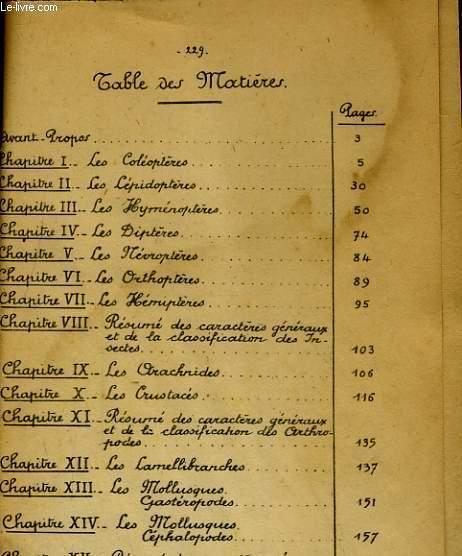 Le-livre.com
- 229.
Table des Matières.
Pages.
Avant-Propos 3
Chapitre I.- Les Coléoptères 5
Chapitre II.- Les Lépidoptères 30
Chapitre III.- Les Hyménoptères 50
Chapitre IV.- Les Diptères 74
Chapitre V.- Les Névroptères 84
Chapitre VI.- Les Orthoptères 89
Chapitre VII.- Les Hémiptères 95
Chapitre VIII.- Résumé des caractères généraux
et de la classification des In-
sectes 103
Chapitre IX.- Les Arachnides 106
Chapitre X.- Les Crustacés 116
Chapitre XI.- Résumé des caractères généraux
et de la classification des Arthro-
podes 135
Chapitre XII.- Les Lamellibranches 137
Chapitre XIII.- Les Mollusques
Gastéropodes 151
Chapitre XIV.- Les Mollusques
Céphalopodes 157